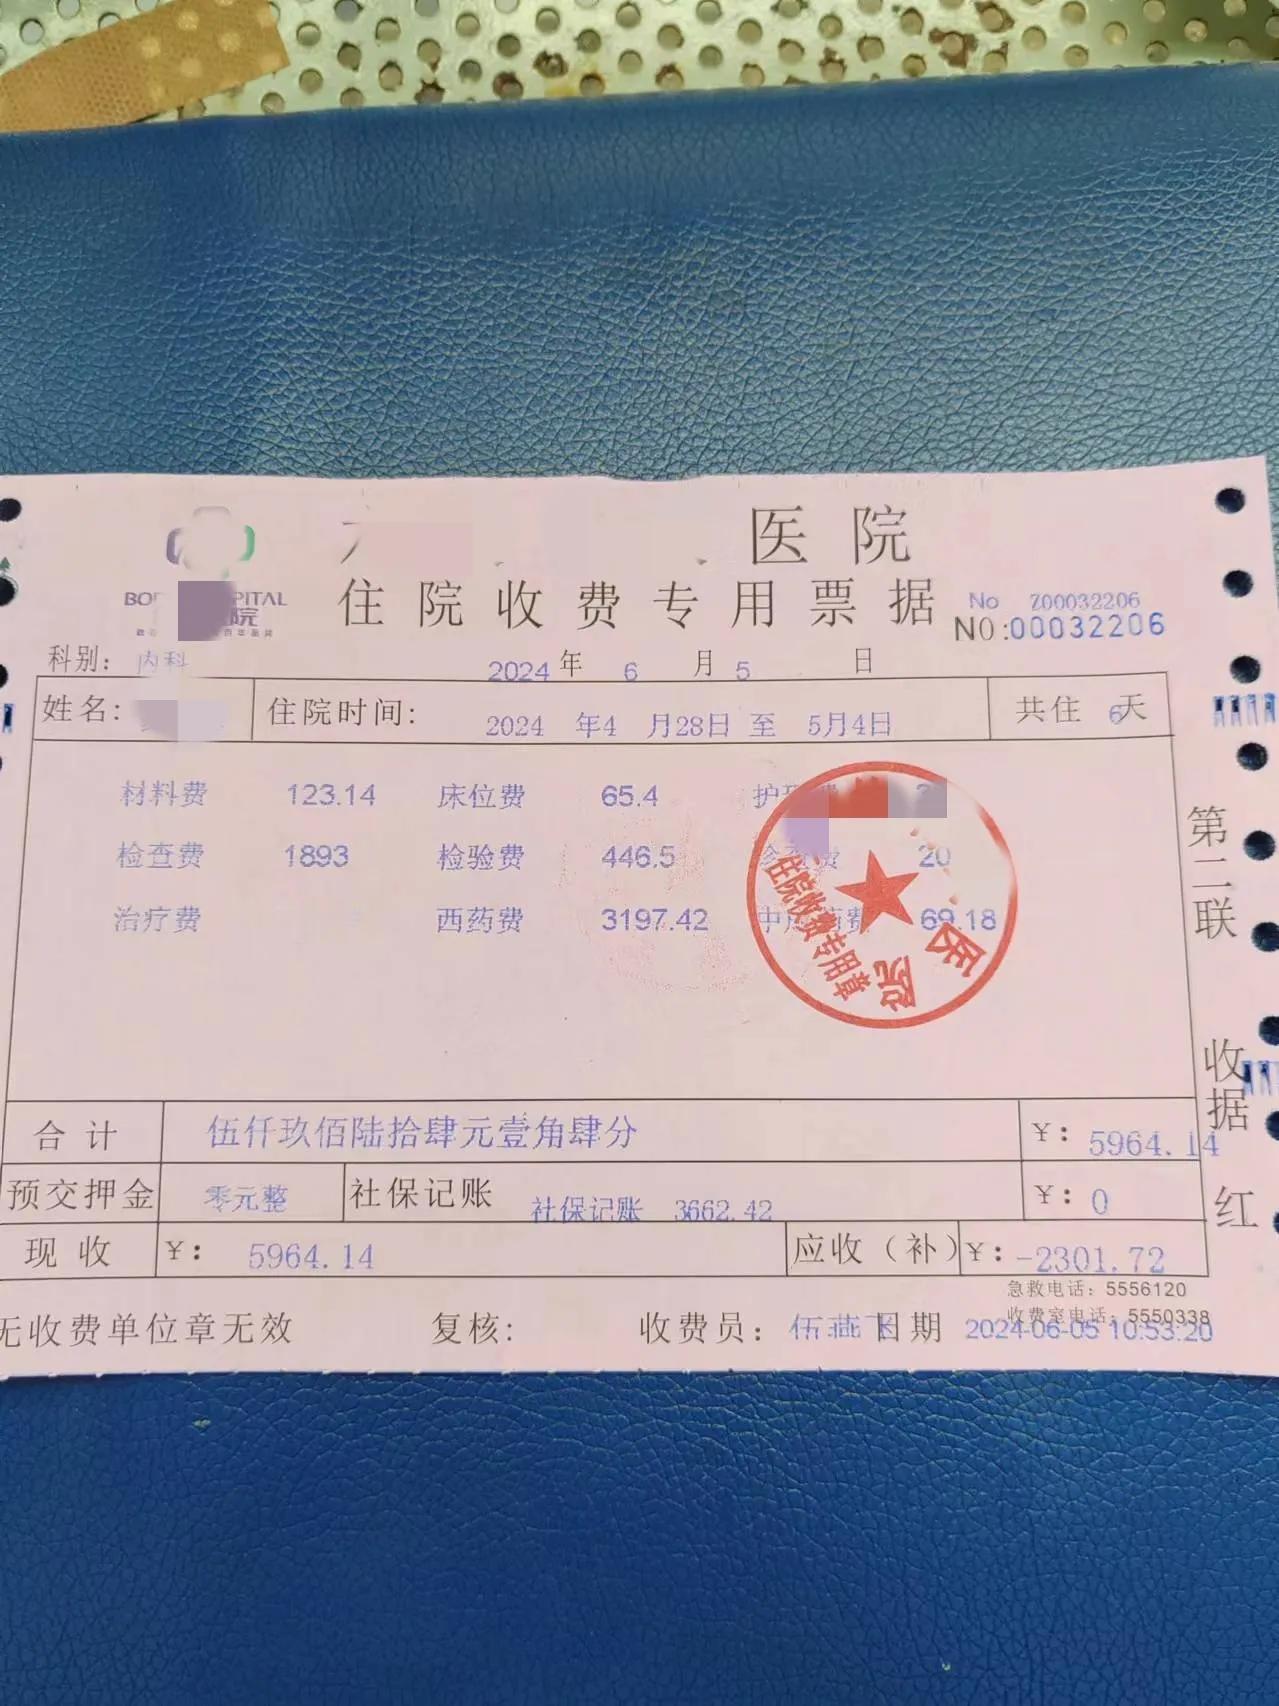 医院
住院收费专用票据
No Z00032206
NO:00032206
科别: 内科
2024 年 6 月 5 日
姓名: 住院时间: 2024 年4 月28日 至 5月4日 共住 6天
材料费 123.14 床位费 65.4
检查费 1893 检验费 446.5 20
治疗费 西药费 3197.42 69.18
住院收费专用章
医院
合计 伍仟玖佰陆拾肆元壹角肆分 ¥: 5964.14
预交押金 零元整 社保记账 社保记账 3662.42 ¥: 0
现收 ¥: 5964.14 应收（补） ¥: -2301.72
急救电话: 5556120
收费室电话: 5550338
无收费单位章无效 复核: 收费员: 伍燕 日期 2024-06-05 10:53:20
第二联 收据 红